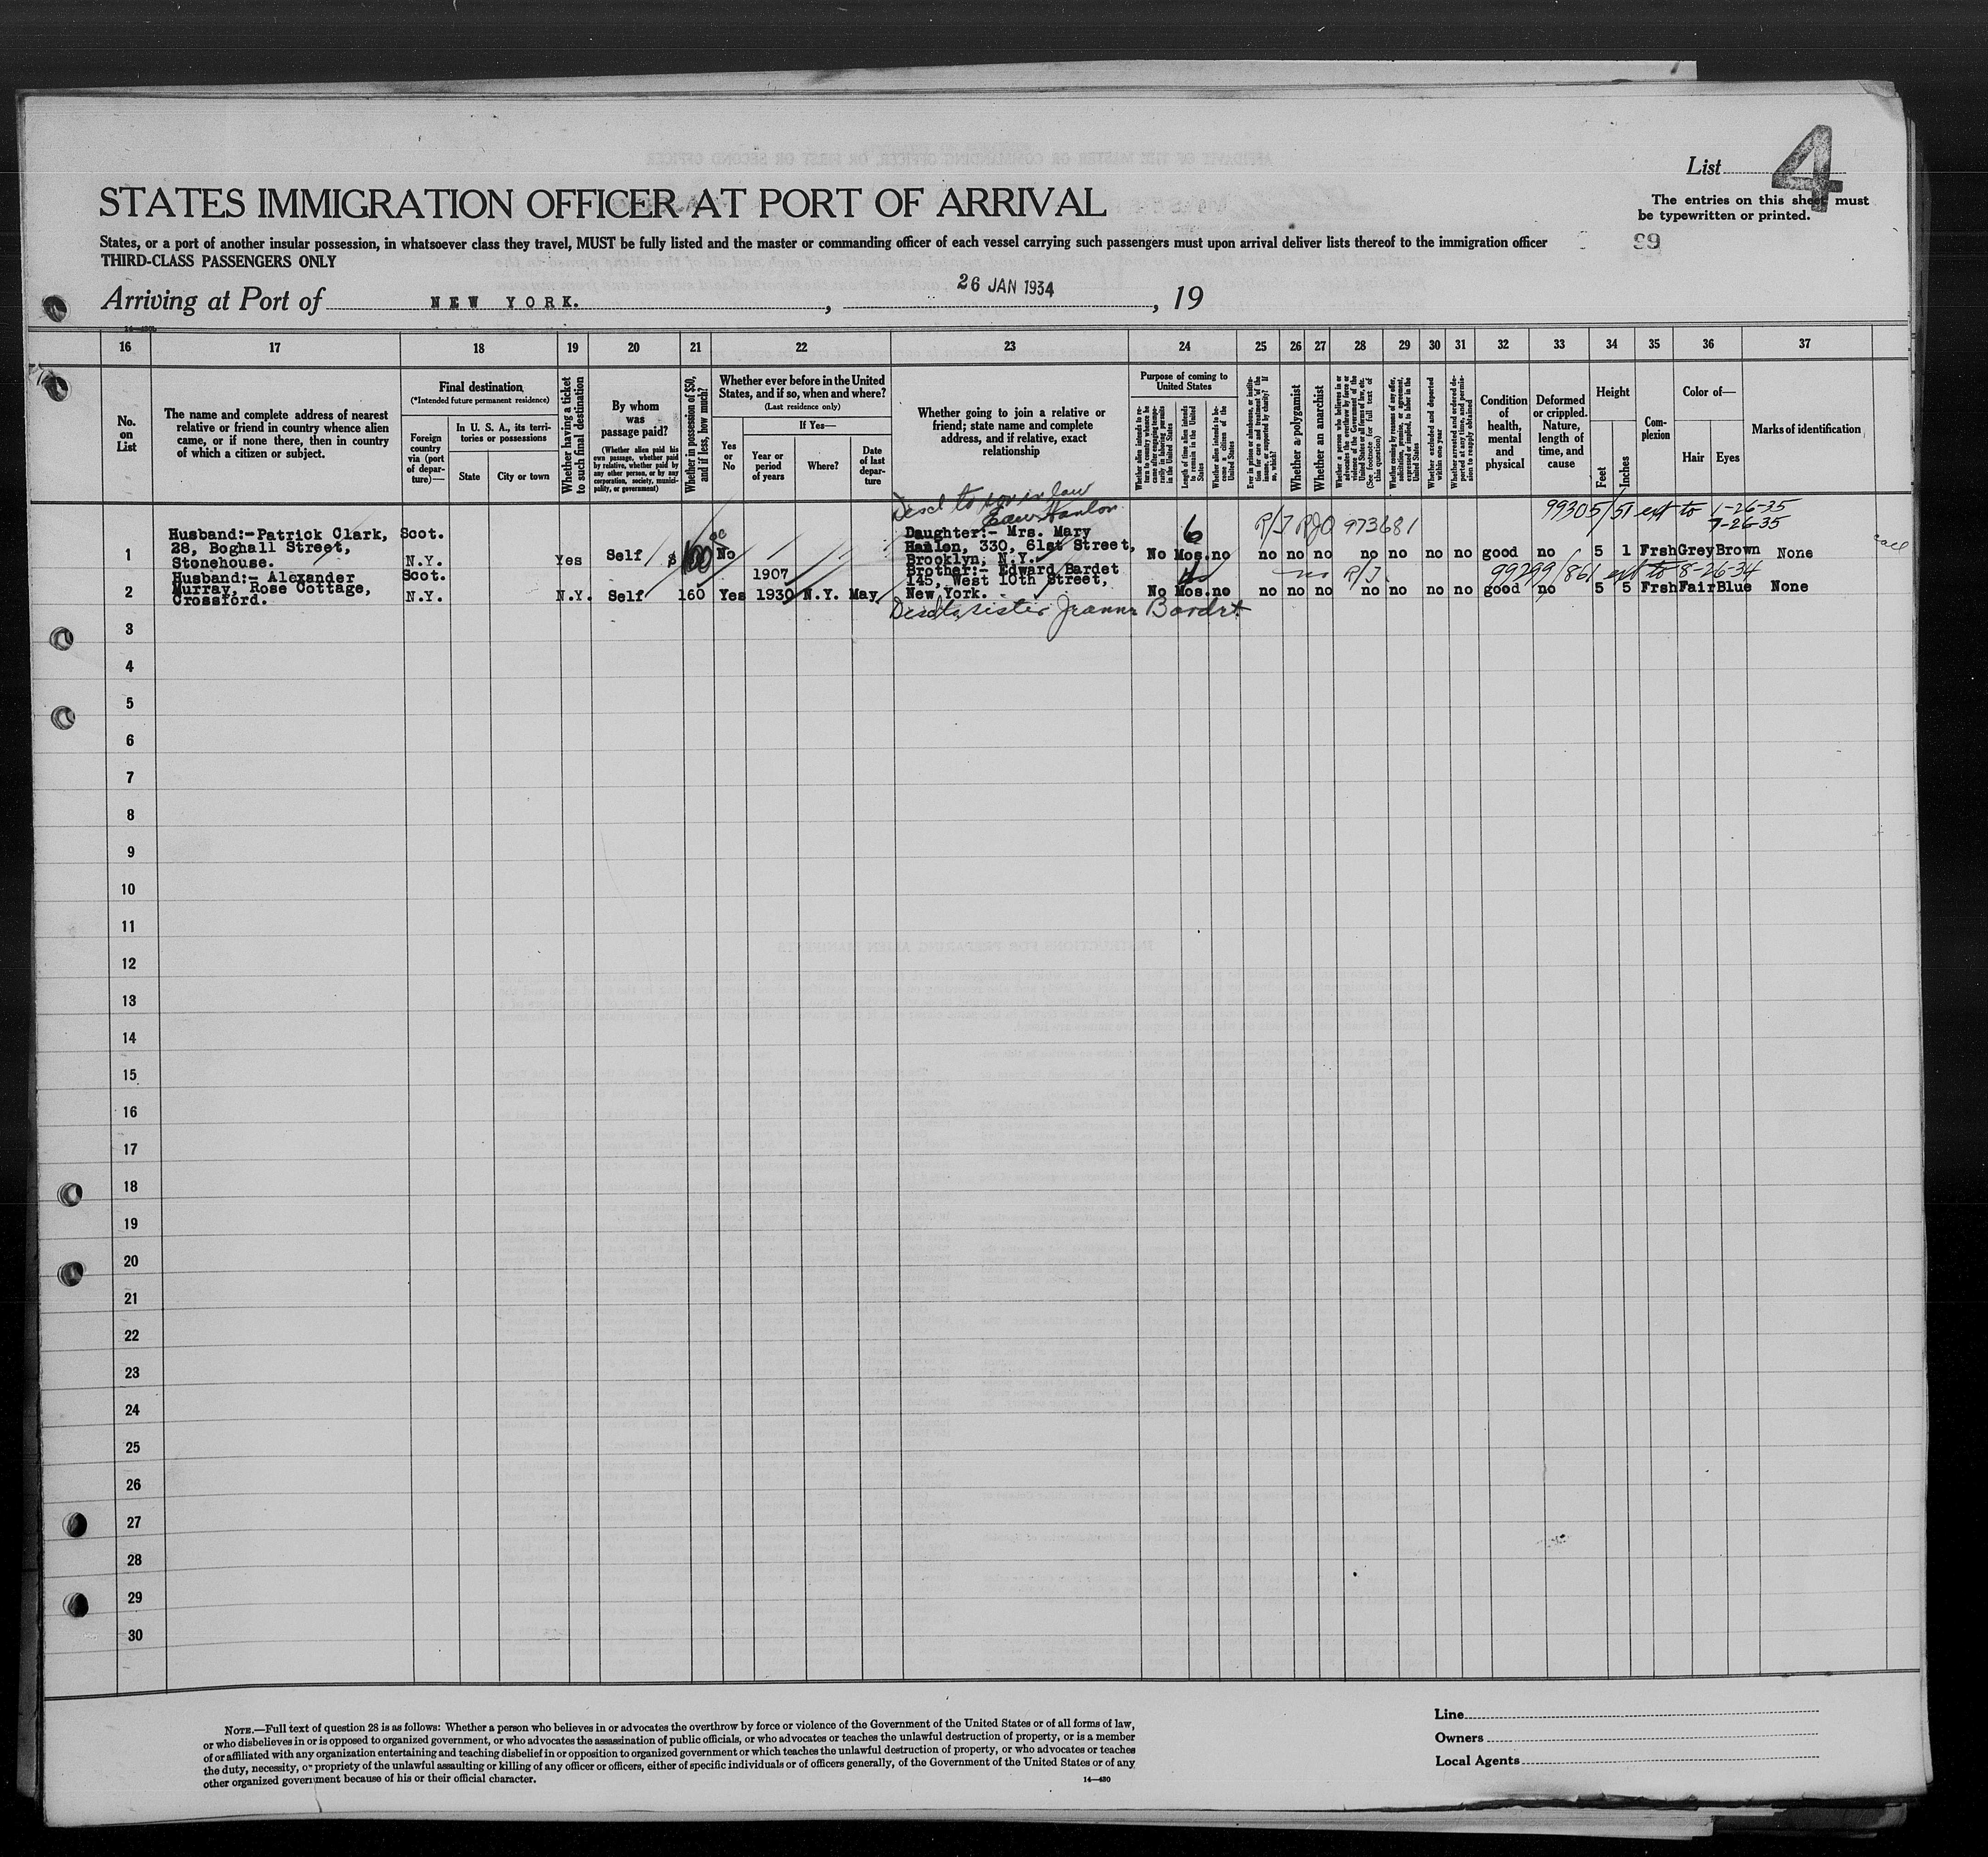 List 4
STATES IMMIGRATION OFFICER AT PORT OF ARRIVAL
The entries on this sheet must
be typewritten or printed.
States, or a port of another insular possession, in whatsoever class they travel, MUST be fully listed and the master or commanding officer of each vessel carrying such passengers must upon arrival deliver lists thereof to the immigration officer
THIRD-CLASS PASSENGERS ONLY
Arriving at Port of NEW YORK. , 26 JAN 1934 , 19
16 17 18 19 20 21 22 23 24 25 26 27 28 29 30 31 32 33 34 35 36 37
No.
on
List
The name and complete address of nearest
relative or friend in country whence alien
came, or if none there, then in country
of which a citizen or subject.
Final destination
(*Intended future permanent residence)
Foreign
country
via (port
of depar-
ture)—
In U. S. A., its terri-
tories or possessions
State
City or town
Whether having a ticket
to such final destination
By whom
was
passage paid?
(Whether alien paid his
own passage, whether paid
by relative, whether paid by
any other person, or by any
corporation, society, munici-
pality, or government)
Whether in possession of $50,
and if less, how much?
Whether ever before in the United
States, and if so, when and where?
(Last residence only)
Yes
or
No
If Yes—
Year or
period
of years
Where?
Date
of last
depar-
ture
Whether going to join a relative or
friend; state name and complete
address, and if relative, exact
relationship
Purpose of coming to
United States
Whether alien intends to re-
turn to country whence he
came after engaging tempo-
rarily in laboring pursuits
in the United States
Length of time alien intends
to remain in the United
States
Whether alien intends to be-
come a citizen of the
United States
Ever in prison or almshouse, or institu-
tion for care and treatment of the
insane, or supported by charity? If
so, which?
Whether a polygamist
Whether an anarchist
Whether a person who believes in or
advocates the overthrow by force or
violence of the Government of the
United States or all forms of law, etc.
(See footnote for full text of
this question)
Whether coming by reason of any offer,
solicitation, promise, or agreement,
expressed or implied, to labor in the
United States
Whether excluded and deported
within one year
Whether arrested and ordered de-
ported at any time, and permis-
sion to reapply obtained
Condition
of
health,
mental
and
physical
Deformed
or crippled.
Nature,
length of
time, and
cause
Height
Feet
Inches
Com-
plexion
Color of—
Hair
Eyes
Marks of identification
Discl to son in law
Edw Hanlon
99305/51 ext to 1-26-35
7-26-35
6 R/J RJO 973681
1
Husband:-Patrick Clark,
28, Boghall Street,
Stonehouse.
Scot.
N.Y.
Yes Self $ 100 No
Daughter:- Mrs. Mary
Hanlon, 330, 61st Street,
Brooklyn, N.Y.
No Mos. no no no no no no no no good no 5 1 Frsh Grey Brown None
2
Husband:- Alexander
Murray, Rose Cottage,
Crossford.
Scot.
N.Y.
N.Y. Self 160 Yes
1907
1930 N.Y. May
Brother:- Edward Bardet
145, West 10th Street,
New York.
R/J. 99299/861 ext to 8-26-34
No Mos. no no no no no no no no good no 5 5 Frsh Fair Blue None
sister Jeanne Bardet
3
4
5
6
7
8
9
10
11
12
13
14
15
16
17
18
19
20
21
22
23
24
25
26
27
28
29
30
NOTE.—Full text of question 28 is as follows: Whether a person who believes in or advocates the overthrow by force or violence of the Government of the United States or of all forms of law,
or who disbelieves in or is opposed to organized government, or who advocates the assassination of public officials, or who advocates or teaches the unlawful destruction of property, or is a member
of or affiliated with any organization entertaining and teaching disbelief in or opposition to organized government or which teaches the unlawful destruction of property, or who advocates or teaches
the duty, necessity, or propriety of the unlawful assaulting or killing of any officer or officers, either of specific individuals or of officers generally, of the Government of the United States or of any
other organized government because of his or their official character.
14—430
Line
Owners
Local Agents